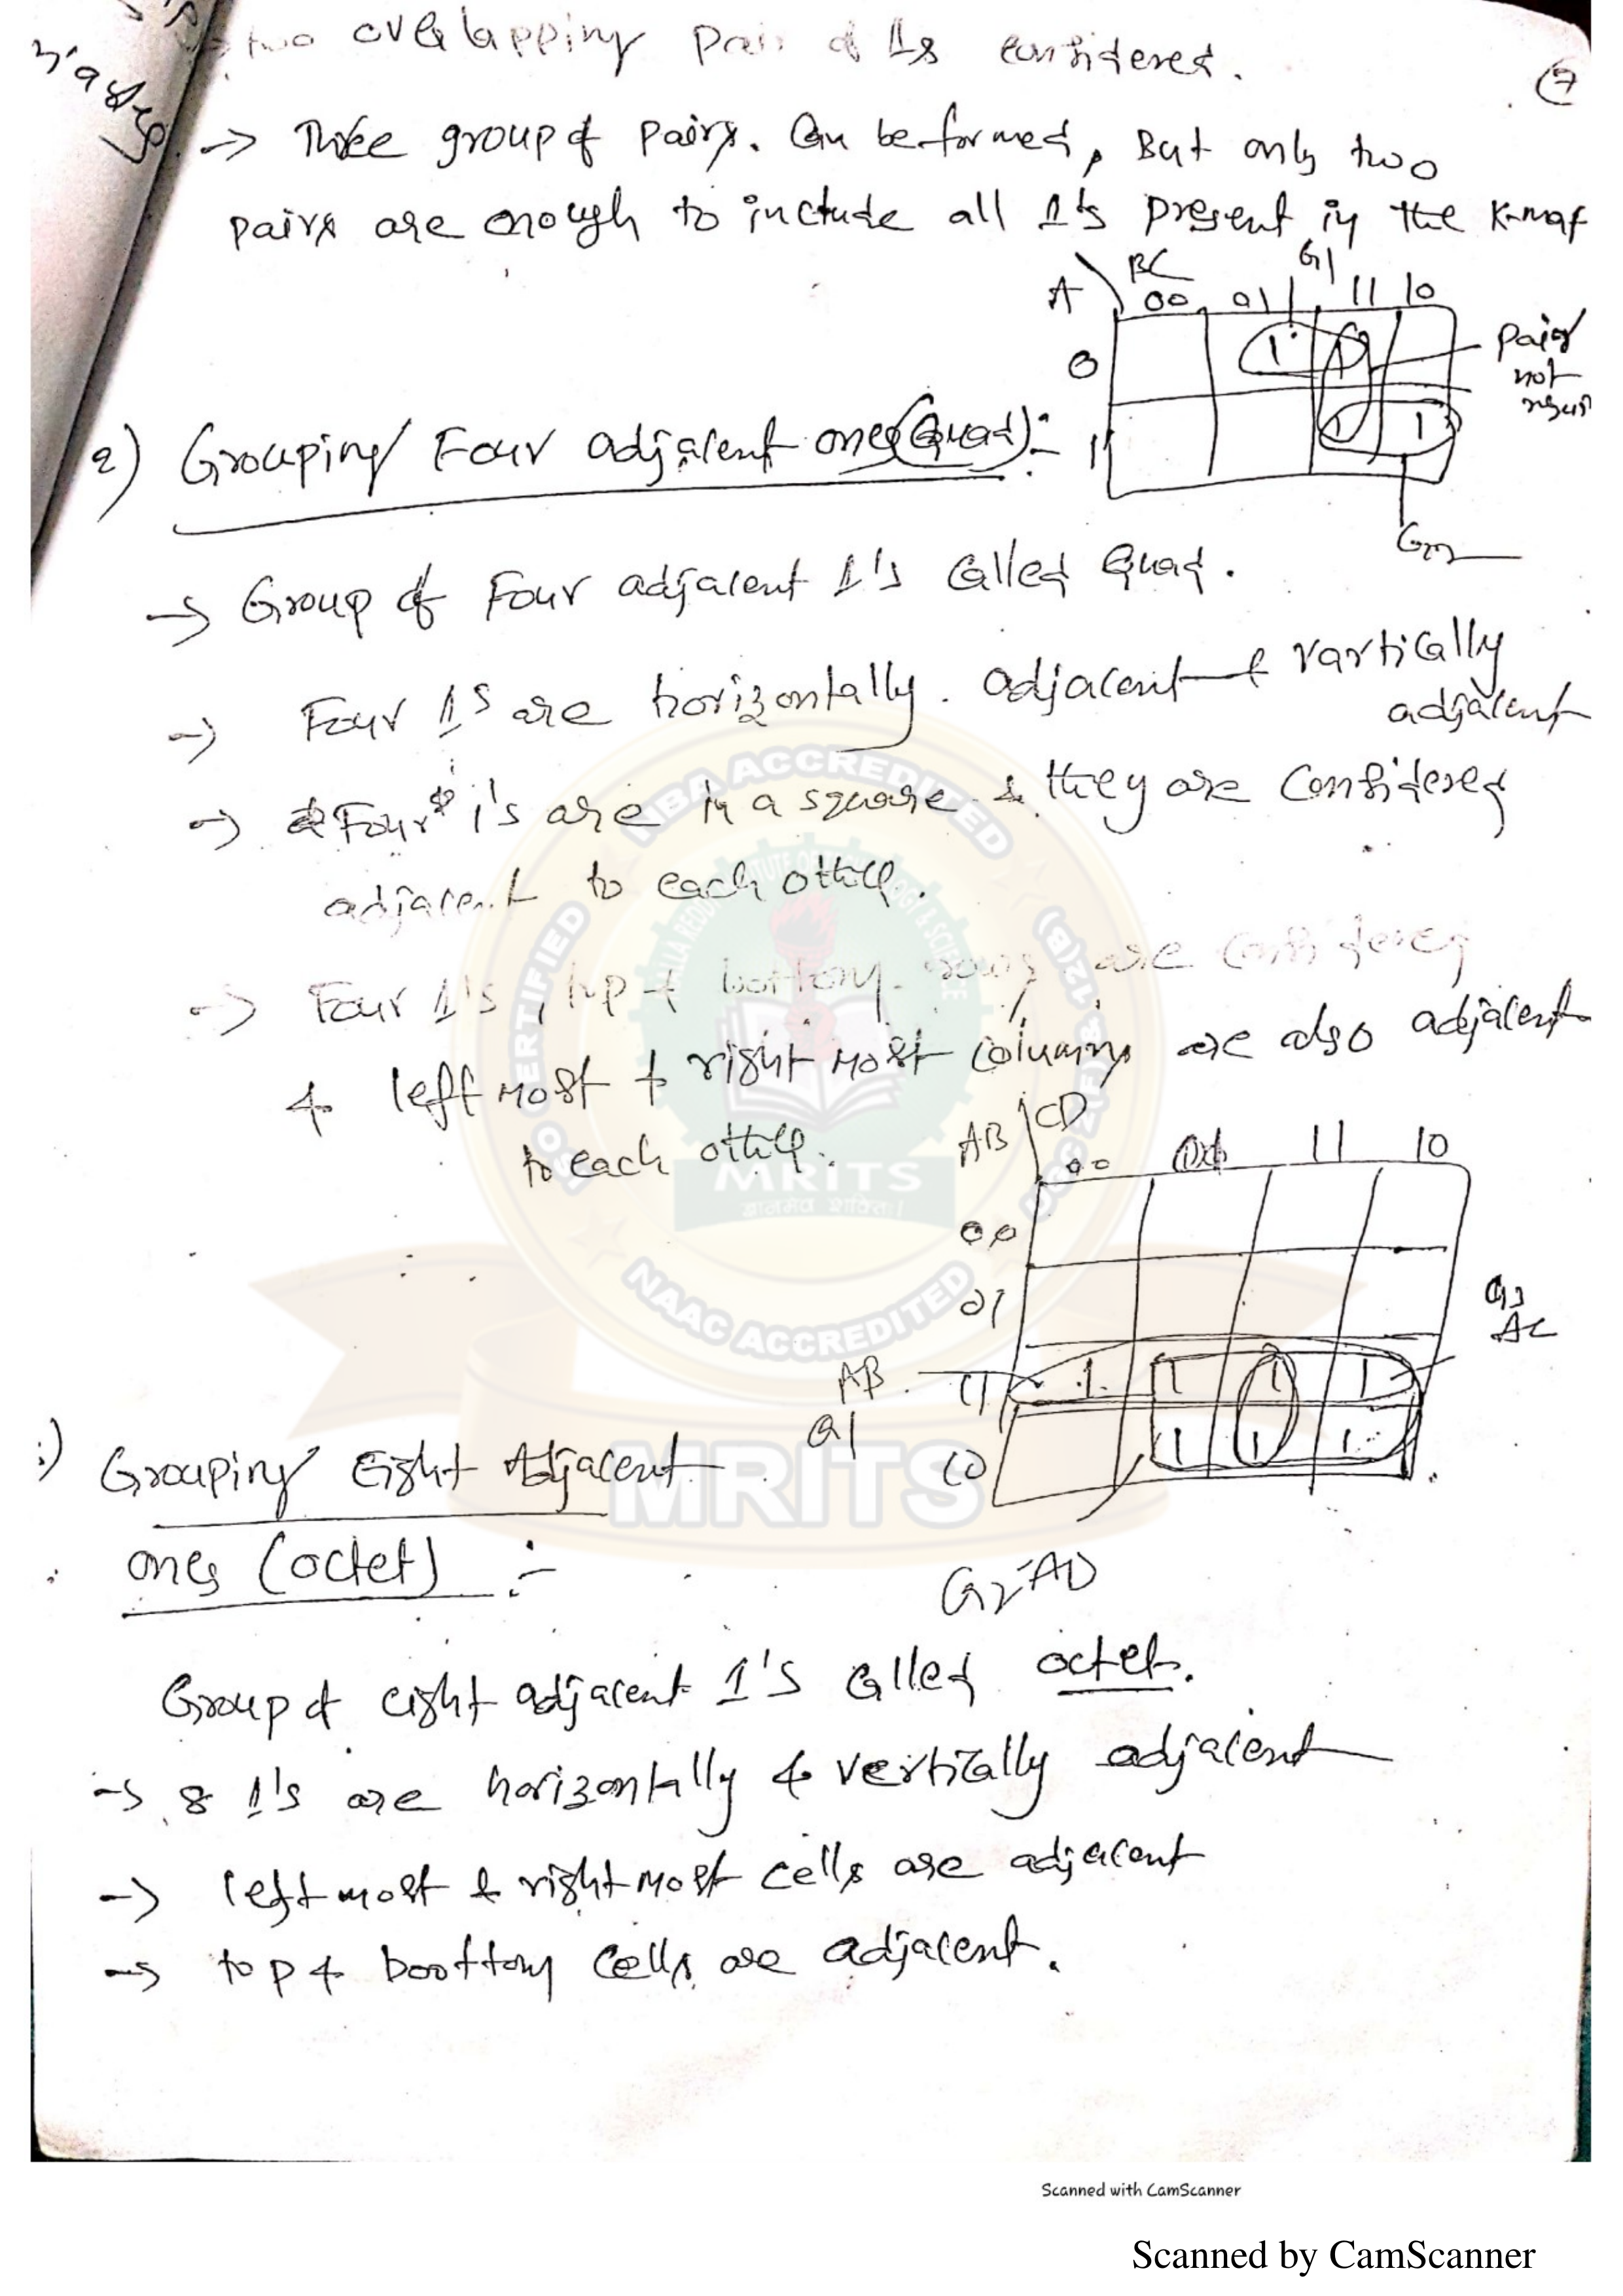 two overlapping pair of 1s considered.
(7)
→ Three group of pairs. Can be formed, But only two
pairs are enough to include all 1's present in the K-map
A \ BC 00 01 11 10
G1
0 1 1
pair
not
1 1 1
2) Grouping Four adjacent ones (Quad):-
→ Group of Four adjacent 1's Called Quad.
→ Four 1s are horizontally. adjacent & vartically
adjacent
→ Four 1's are in a square & they are Considered
adjacent to each other.
→ Four 1's, top & bottom rows are Considered
& left most & right most columns are also adjacent
to each other.
AB \ CD 00 01 11 10
00
01
G3
AC
AB 11 1 1 1 1
G1
10 1 1 1
Grouping Eight Adjacent
ones (octet) :-
G2-AD
Group of eight adjacent 1's Called octet.
→ 8 1's are horizontally & vertically adjacent
→ left most & right most cells are adjacent
→ top & boottom Cells are adjacent.
NBA ACCREDITED
MRITS
NAAC ACCREDITED
MRITS
Scanned with CamScanner
Scanned by CamScanner